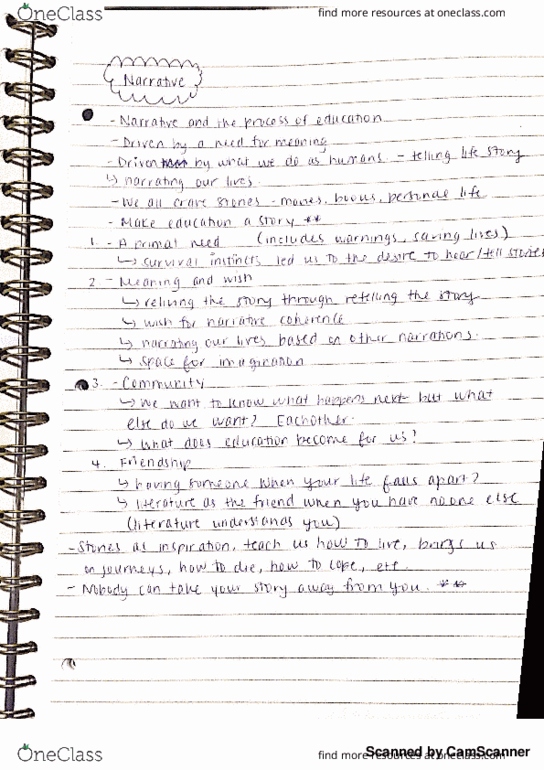 OneClass find more resources at oneclass.com
Narrative
- Narrative and the process of education
- Driven by a need for meaning
- Driven by what we do as humans - telling life story
↳ narrating our lives.
- We all crave stories - movies, books, personal life
- Make education a story **
1. - A primal need (includes warnings, saving lives)
↳ survival instincts led us to the desire to hear/tell stories
2. - Meaning and wish
↳ reliving the story through retelling the story
↳ wish for narrative coherence
↳ narrating our lives based on other narrations.
↳ space for imagination
3. - Community
↳ We want to know what happens next but what
else do we want? Eachother.
↳ What does education become for us?
4. Friendship
↳ having someone when your life falls apart?
↳ literature as the friend when you have no one else
(literature understands you)
- Stories as inspiration, teach us how to live, brings us
on journeys, how to die, how to cope, etc.
- Nobody can take your story away from you. **
OneClass find more resources at oneclass.com
Scanned by CamScanner